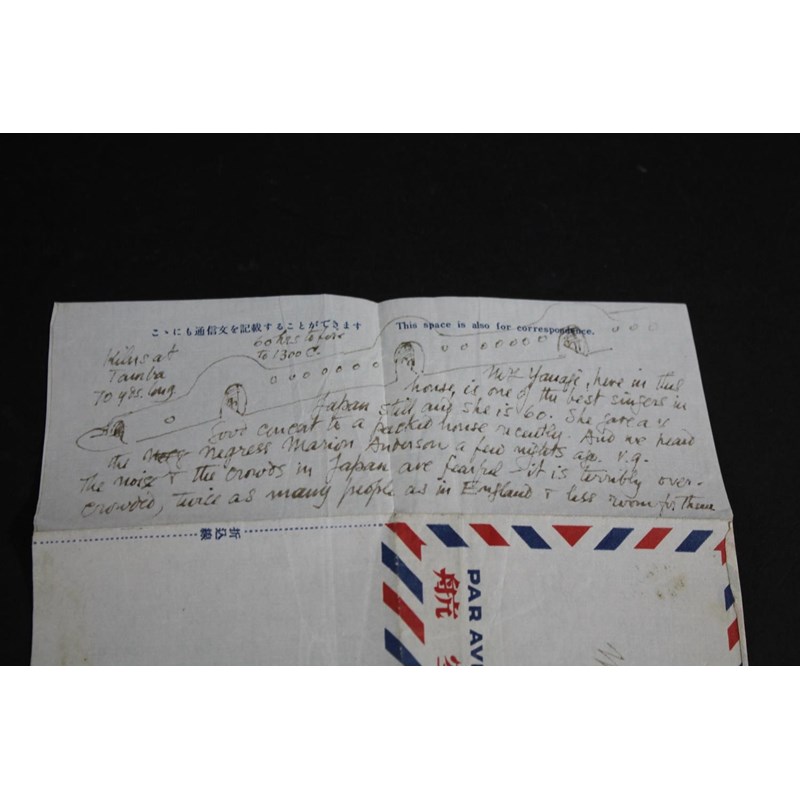 こゝにも通信文を記載することができます
This space is also for correspondence.
Kilns at
Tamba
70 yds. long
60 hrs to fire
To 1300 C.
Mrs Yanagi, here in this
house, is one of the best singers in
Japan still and she is 60. She gave a v.
good concert to a packed house recently. And we heard
the Negress Marion Anderson a few nights ago. v.g.
The noise & the crowds in Japan are fearful – it is terribly over-
crowded, twice as many people as in England & less room for them
折込線
PAR AVI
航